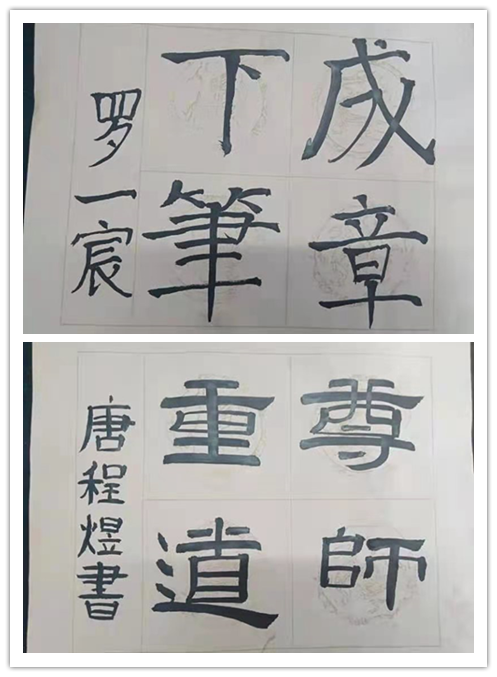 成章
下筆
罗一宸
尊師
重道
唐程煜書